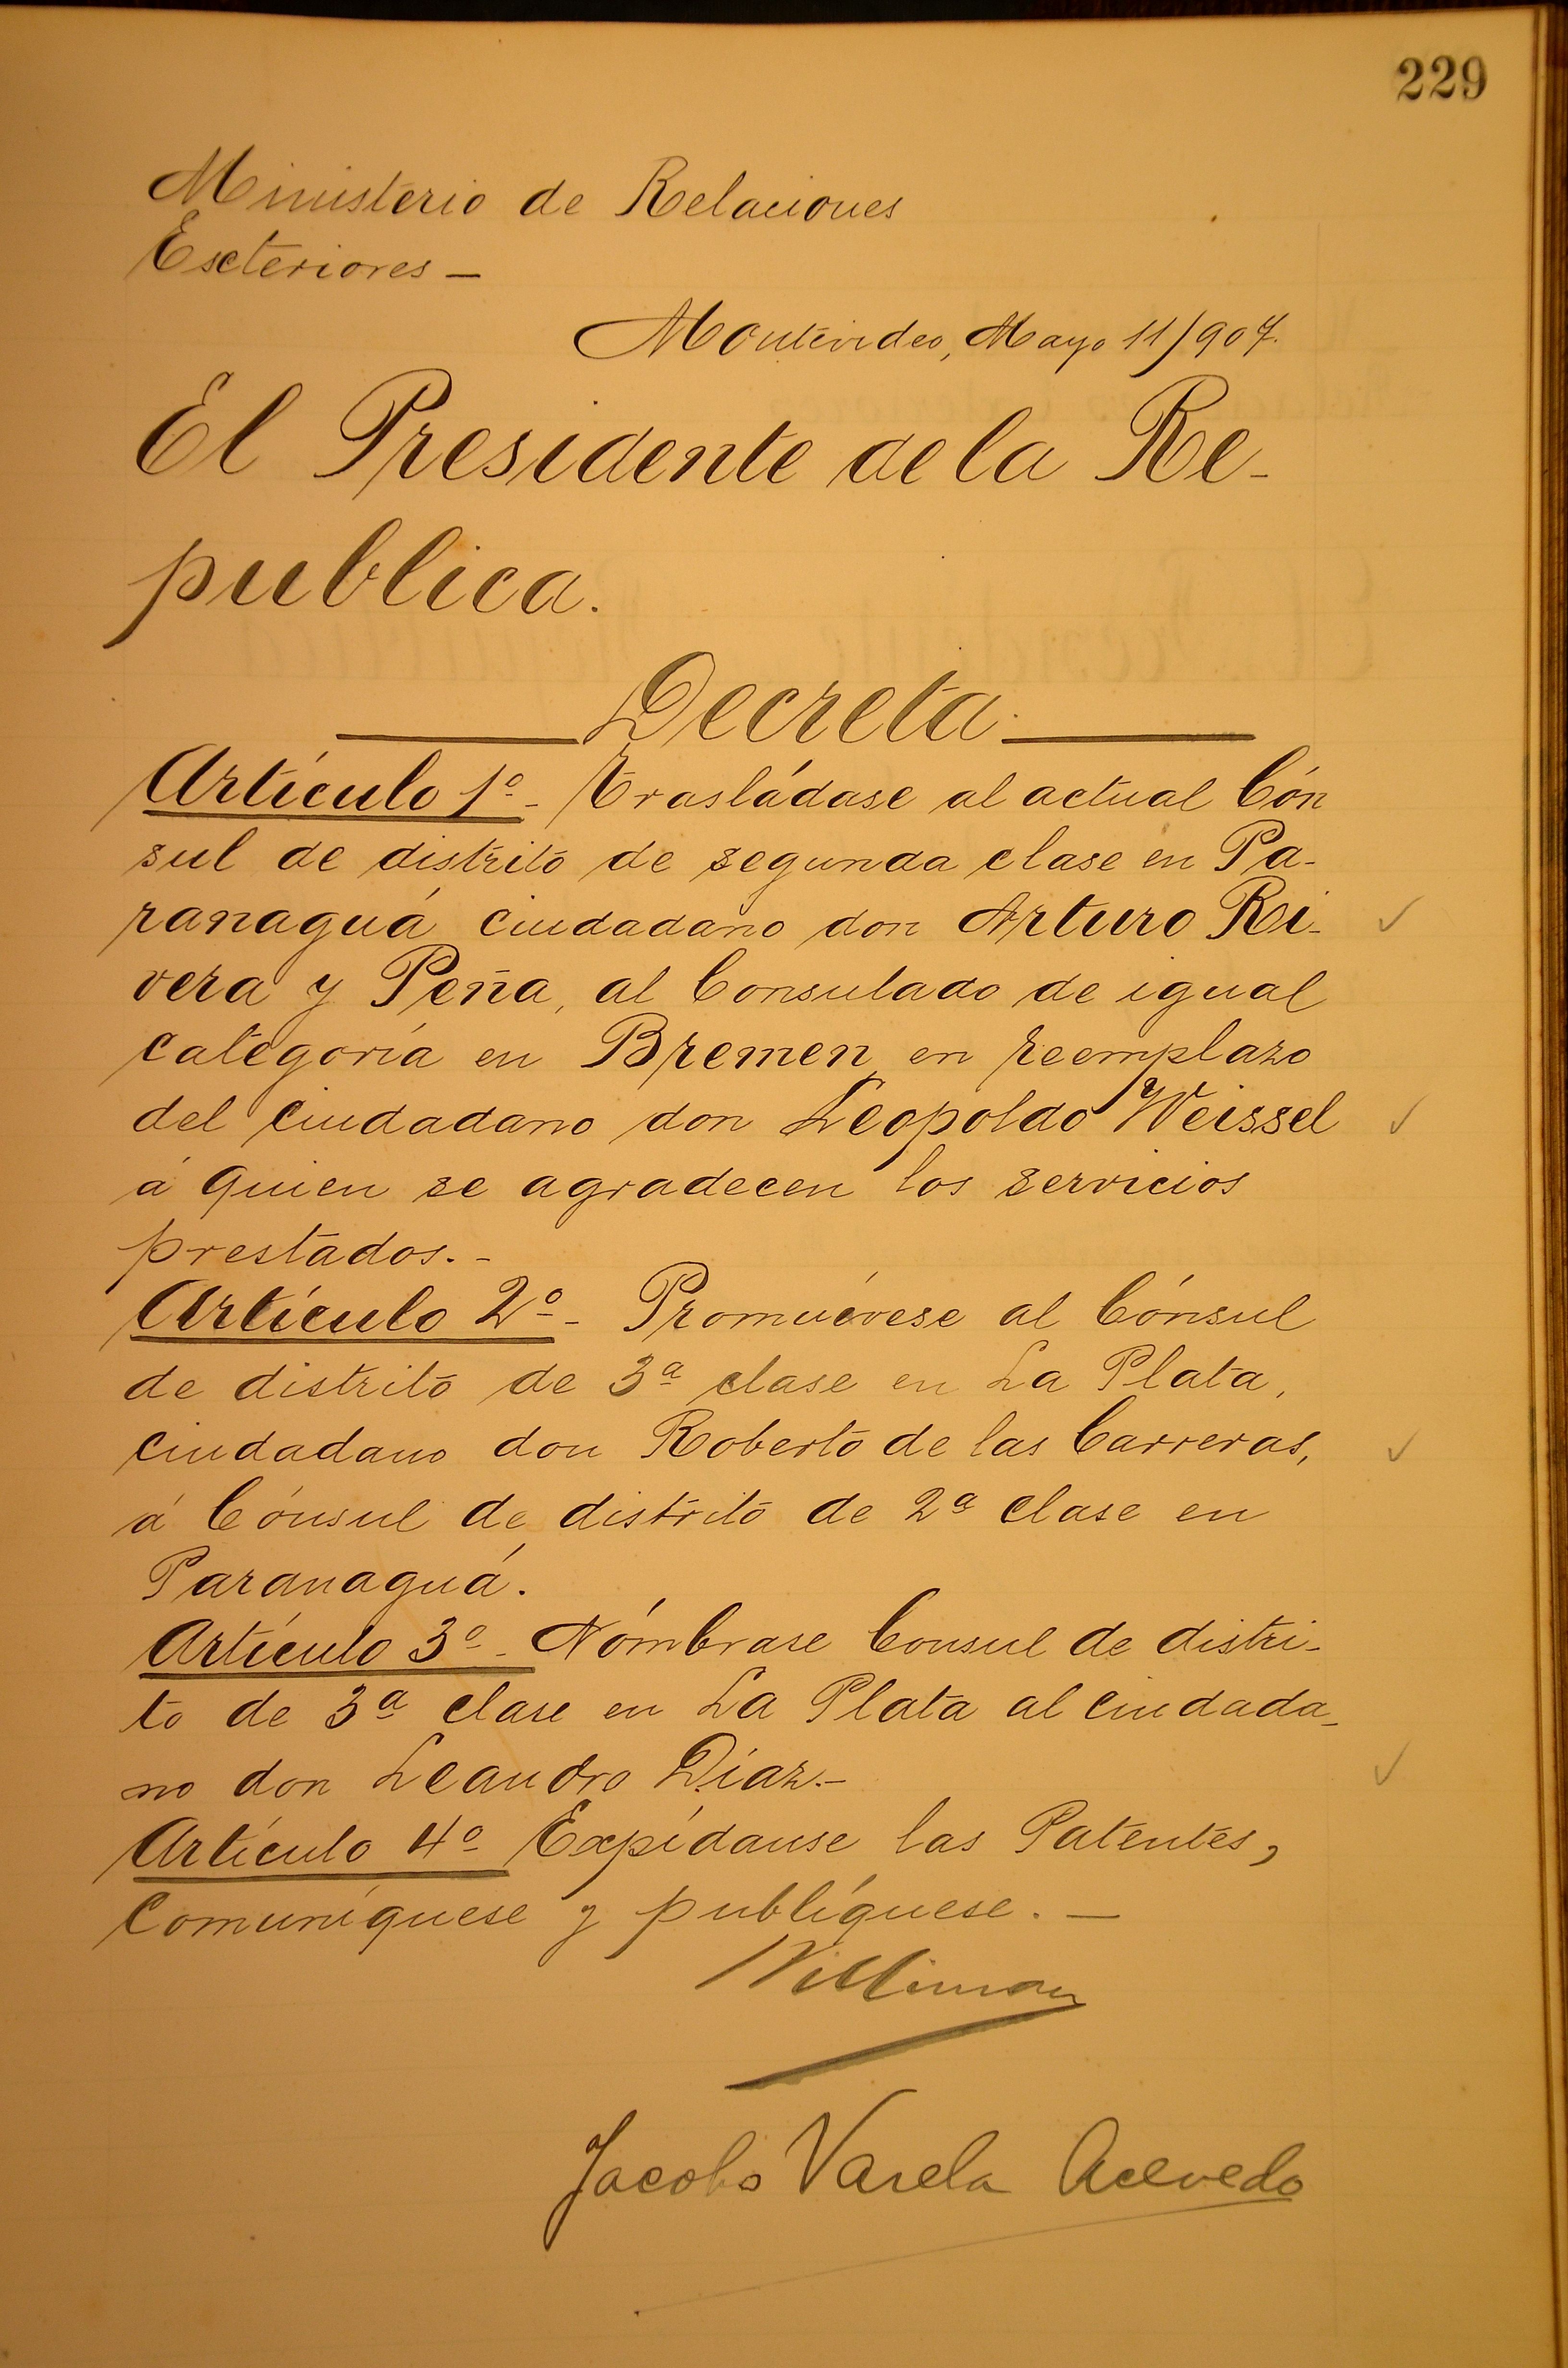 229
Ministerio de Relaciones
Exteriores —
Montevideo, Mayo 11/907.
El Presidente de la Re-
publica.
Decreta.
Artículo 1º - Trasládase al actual Cón
sul de distrito de segunda clase en Pa-
ranaguá ciudadano don Arturo Ri-
vera y Peña, al Consulado de igual
categoría en Bremen, en reemplazo
del ciudadano don Leopoldo Weissel
á quien se agradecen los servicios
prestados. -
Artículo 2º - Promuévese al Cónsul
de distrito de 3ª clase en La Plata,
ciudadano don Roberto de las Carreras,
á Cónsul de distrito de 2ª clase en
Paranaguá.
Artículo 3º - Nómbrase Consul de distri-
to de 3ª clase en La Plata al ciudada-
no don Leandro Díaz. -
Artículo 4º Expídanse las Patentes,
comuníquese y publíquese. —
Williman
Jacobo Varela Acevedo